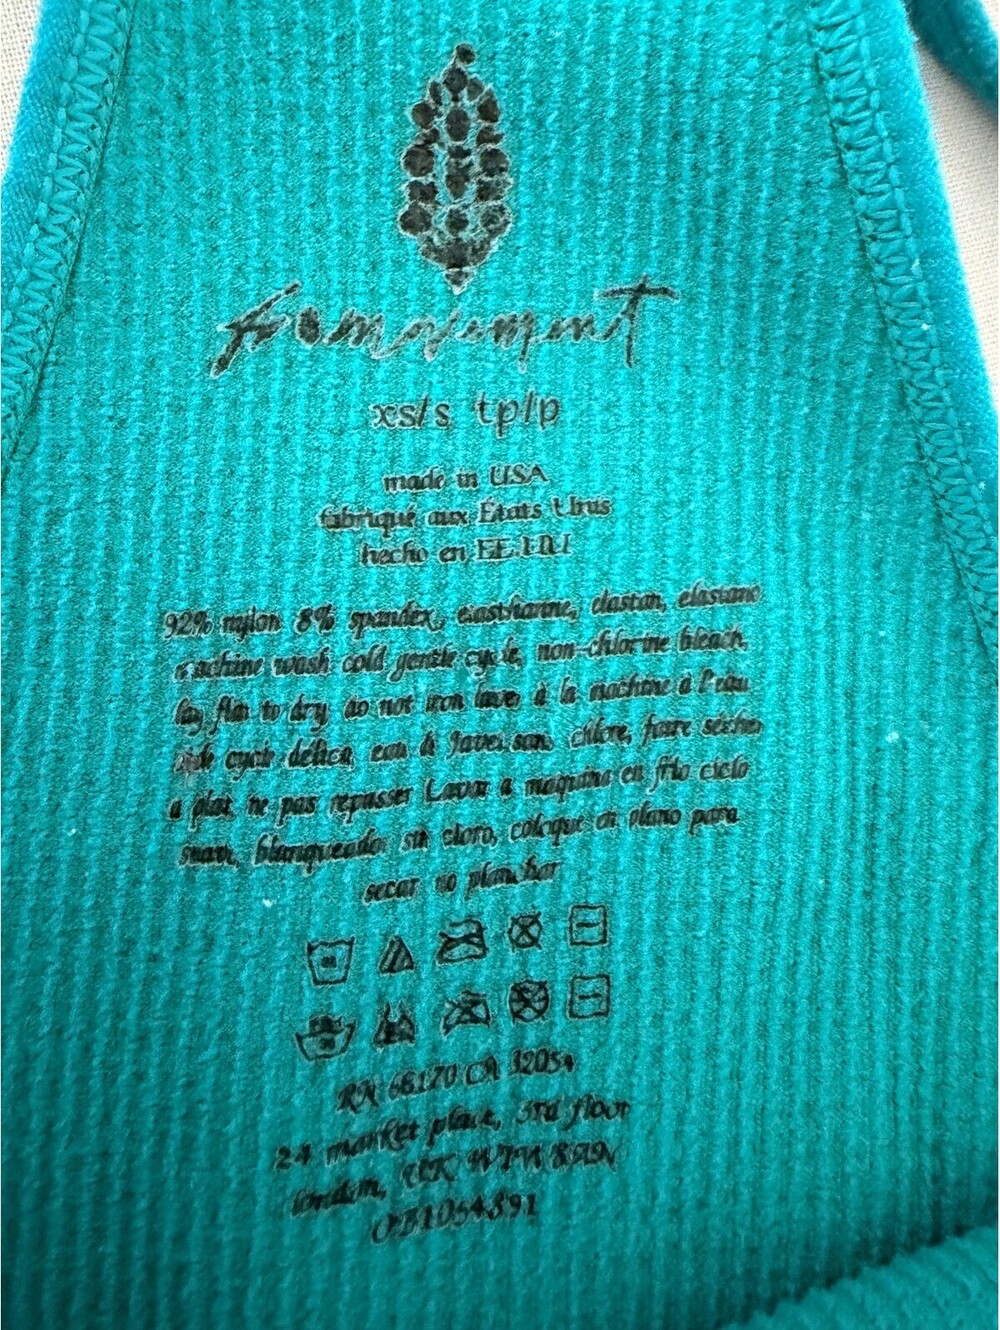 fpmovement
xs/s tp/p
made in USA
fabriqué aux États Unis
hecho en EE.UU
92% nylon 8% spandex, elasthanne, elastan, elastano
machine wash cold gentle cycle, non-chlorine bleach,
lay flat to dry, do not iron laver à la machine à l'eau
cycle délicat, eau de Javel sans chlore, faire sécher
à plat, ne pas repasser Lavar a maquina en frio ciclo
suave, blanqueador sin cloro, coloque en plano para
secar no planchar
RN 66170 CA 32054
24 market place, 3rd floor
london, UK W1W 8AN
OB1054891